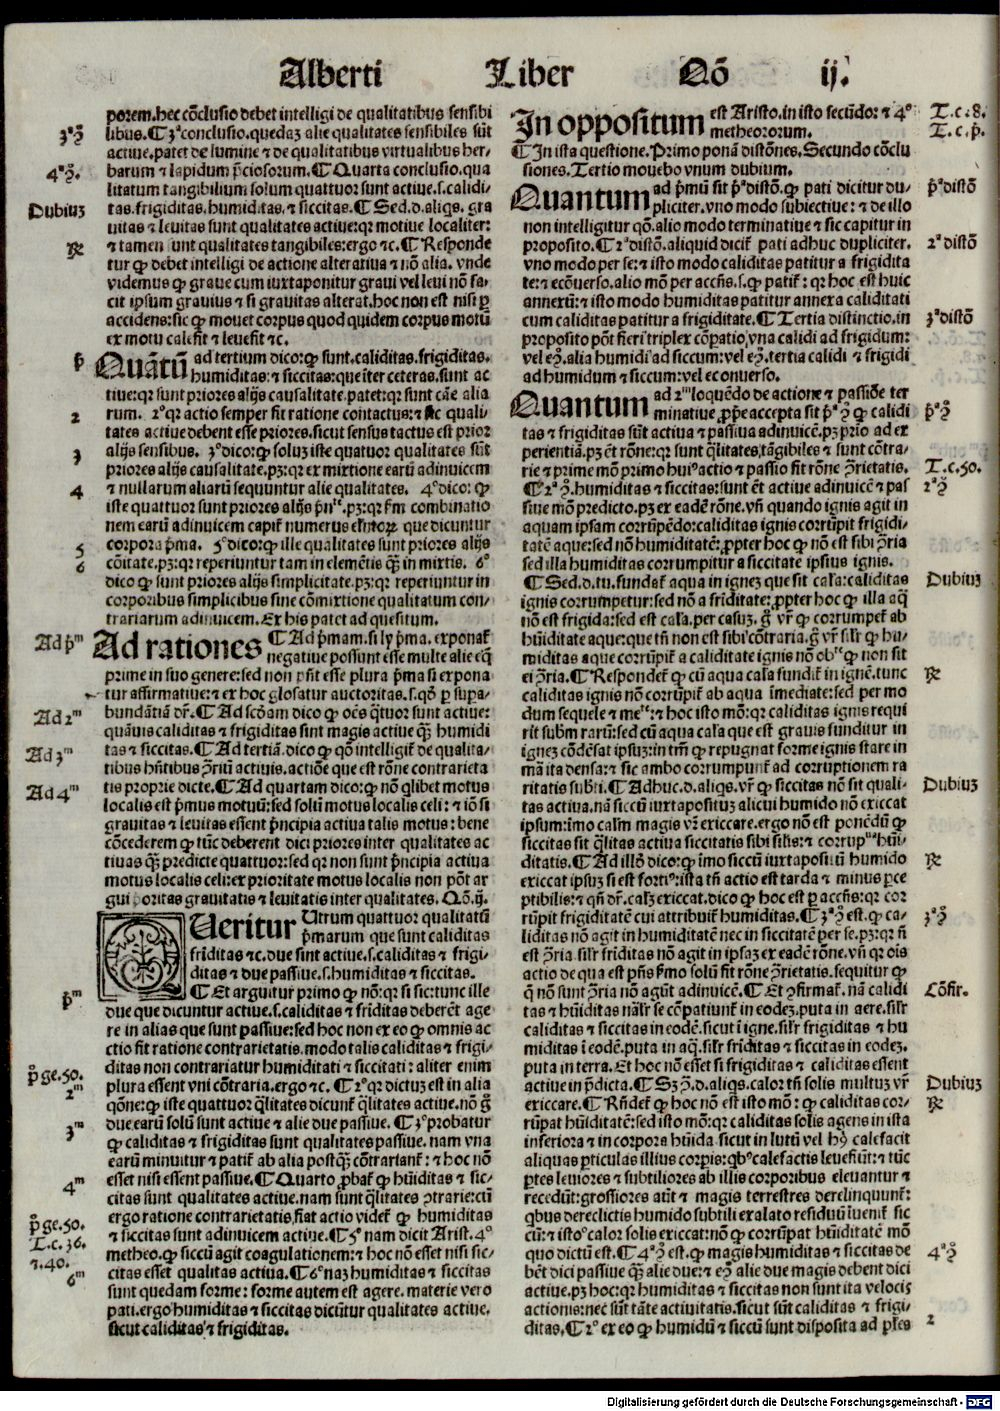 Alberti Liber Qō ij.
porem.hec cōclusio debet intelligi de qualitatibus sensibi
libus.¶ 3ª conclusio.quedaȝ alie qualitates sensibiles sūt
actiue.patet de lumine ⁊ de qualitatibus virtualibus her-
barum ⁊ lapidum p̄ciosorum.¶ Quarta conclusio.qua
litatum tangibilium solum quattuor sunt actiue.s.calidi-
tas.frigiditas.humiditas.⁊ siccitas.¶ Sed.d.aliqs. gra
uitas ⁊ leuitas sunt qualitates actiue:qr motiue localiter:
⁊ tamen sunt qualitates tangibiles:ergo ⁊c.¶ Responde
tur ꝙ debet intelligi de actione alteratiua ⁊ nō alia. vnde
videmus ꝙ graue cum iuxtaponitur graui vel leui nō fa-
cit ipsum grauius ⁊ si grauitas alterat.hoc non est nisi ꝑ
accidens:sic ꝙ mouet corpus quod quidem corpus motū
ex motu calefit ⁊ leuefit ⁊c.
Quātū ad tertium dico:ꝙ sunt.caliditas.frigiditas.
humiditas:⁊ siccitas:que īter ceteras.sunt ac
tiue:qr sunt priores alijs causalitate.patet:qr sunt cāe alia
rum. 2º qr actio semper fit ratione contactus:⁊ sic quali-
tates actiue debent esse priores.sicut sensus tactus est prior
alijs sensibus. 3º dico:ꝙ soluȝ iste quatuor qualitates sūt
priores alijs causalitate.pȝ:qr ex mixtione earū adinuicem
⁊ nullarum aliarū sequuntur alie qualitates. 4º dico: ꝙ
iste quattuor sunt priores alijs p̄nᵗᵉ.pȝ:qr fm combinatio
nem earū adinuicem capit numerus elntoꝝ que dicuntur
corpora p̄ma. 5º dico:ꝙ ille qualitates sunt priores alijs
cōitate.pȝ:qr reperiuntur tam in elemētis ꝙ̄ in mixtis. 6º
dico ꝙ sunt priores alijs simplicitate.pȝ:qr reperiuntur in
corporibus simplicibus sine cōmixtione qualitatum con-
trariarum adinuicem. Ex his patet ad quesitum.
Ad rationes ¶ Ad p̄mam.si ly p̄ma. exponat
negatiue possunt esse multe alie eq̄
prime in suo genere:sed non pn̄t esse plura p̄ma si expona
tur affirmatiue:⁊ ex hoc glosatur auctoritas.s.qō ꝑ supa-
bundātiā dr̄.¶ Ad scōam dico ꝙ oēs q̄tuor sunt actiue:
quāuis caliditas ⁊ frigiditas sint magis actiue ꝙ̄ humidi
tas ⁊ siccitas.¶ Ad tertiā.dico ꝙ qō intelligit de qualita-
tibus hn̄tibus ꝯriū actiuis.actiōe que est rōne contrarieta
tis proprie dicte.¶ Ad quartam dico:ꝙ nō qlibet motus
localis est p̄mus motuū:sed solū motus localis celi: ⁊ iō si
grauitas ⁊ leuitas essent p̄ncipia actiua talis motus: bene
cōcederem ꝙ tūc deberent dici priores inter qualitates ac
tiuas ꝙ̄ predicte quattuor:sed qr non sunt p̄ncipia actiua
motus localis celi:ex prioritate motus localis non pōt ar
gui prioritas grauitatis ⁊ leuitatis inter qualitates. Qō.ij.
Queritur Utrum quattuor qualitatū
p̄marum que sunt caliditas
friditas ⁊c.due sint actiue.s.caliditas ⁊ frigi-
ditas ⁊ due passiue.s.humiditas ⁊ siccitas.
¶ Et arguitur primo ꝙ nō:qr si sic:tunc ille
due que dicuntur actiue.s.caliditas ⁊ friditas deberēt age
re in alias que sunt passiue:sed hoc non ex eo ꝙ omnis ac
ctio fit ratione contrarietatis.modo talis caliditas ⁊ frigi-
ditas non contrariatur humiditati ⁊ siccitati: aliter enim
plura essent vni cōtraria.ergo ⁊c. ¶ 2º qr dictuȝ est in alia
qōne:ꝙ iste quattuor q̄litates dicunt q̄litates actiue.nō g̃
due earū solū sunt actiue ⁊ alie due passiue.¶ 3º probatur
ꝙ caliditas ⁊ frigiditas sunt qualitates passiue. nam vna
earū minuitur ⁊ patit ab alia postꝙ̄ cōtrariant: ⁊ hoc nō
esset nisi essent passiue.¶ Quarto ꝓbat ꝙ hūiditas ⁊ sic-
citas sunt qualitates actiue.nam sunt q̄litates ꝯtrarie:cū
ergo ratione contrarietatis.fiat actio videt ꝙ humiditas
⁊ siccitas sunt adinuicem actiue.¶ 5º nam dicit Arist.4º
metheo.ꝙ siccū agit coagulationem:⁊ hoc nō esset nisi sic-
citas esset qualitas actiua.¶ 6º naȝ humiditas ⁊ siccitas
sunt quedam forme: forme autem est agere. materie vero
pati.ergo humiditas ⁊ siccitas dicūtur qualitates actiue.
sicut caliditas ⁊ frigiditas.
3ª ꝯ̄
4ª ꝯ̄.
Dubiuȝ
℞
p̄
2
3
4
5
6
Ad p̄ᵐ
Ad 2ᵐ
Ad 3ᵐ
Ad 4ᵐ
p̄ᵐ
p̊ ge.50.
2ᵐ
3ᵐ
4ᵐ
p̊ ge.50.
T.c.36.
⁊.40.
6ᵐ
In oppositum est Aristo.in isto secūdo: ⁊ 4º
metheororum.
¶ In ista questione.Primo ponā distōnes.Secundo cōclu
siones.Tertio mouebo vnum dubium.
Quantum ad p̄mū sit p̄ª distō.ꝙ pati dicitur du-
pliciter.vno modo subiectiue: ⁊ de illo
non intelligitur qō.alio modo terminatiue ⁊ sic capitur in
proposito.¶ 2ª distō.aliquid dicit pati adhuc dupliciter.
vno modo per se:⁊ isto modo caliditas patitur a frigidita
te:⁊ ecōuerso.alio mō per accn̄s.s.ꝙ patit: qr hoc est huic
annexū:⁊ isto modo humiditas patitur annexa caliditati
cum caliditas patitur a frigiditate.¶ Tertia distinctio.in
proposito pōt fieri triplex cōpatio.vna calidi ad frigidum:
vel eꝯ̄.alia humidi ad siccum:vel eꝯ̄.tertia calidi ⁊ frigidi
ad humidum ⁊ siccum:vel econuerso.
Quantum ad 2ᵐ loquēdo de actione ⁊ passiōe ter
minatiue ꝓp̄e accepta sit p̄ª ꝯ̄ ꝙ calidi
tas ⁊ frigiditas sūt actiua ⁊ passiua adinuicē.pȝ prio ad ex
perientiā.pȝ ēt rōne:qr sunt q̄litates.tāgibiles ⁊ sunt cōtra-
rie ⁊ prime mōn primo huiº actio ⁊ passio fit rōne ꝯrietatis.
¶ 2ª ꝯ̄.humiditas ⁊ siccitas:sunt ēt actiue adinuicē ⁊ pas
siue mōn predicto.pȝ ex eadē rōne.vn̄ quando ignis agit in
aquam ipsam corrūpēdo:caliditas ignis corrūpit frigidi-
tatē aque:sed nō humiditatē:ꝓpter hoc ꝙ nō est sibi ꝯria
sed illa humiditas corrumpitur a siccitate ipsius ignis.
¶ Sed.d.tu.fundat aqua in igneȝ que sit cala:caliditas
ignis corrumpetur:sed nō a friditate:ꝓpter hoc ꝙ illa aq̄
non est frigida:sed est cala.per casuȝ. g̃ vr̄ ꝙ corrumpet ab
hūiditate aque:que tn̄ non est sibi cōtraria.g̃ vr̄ silr ꝙ hu-
miditas aque corrūpit a caliditate ignis nō obᵗᵉ ꝙ non sit
ei ꝯria.¶ Respondet ꝙ cū aqua cala fundit in ignē.tunc
caliditas ignis nō corrūpit ab aqua īmediate:sed per mo
dum sequele ⁊ meᵗᵉ:⁊ hoc isto mō:qr caliditas ignis requi
rit subm rarū:sed cū aqua cala que est grauis funditur in
igneȝ cōdēsat ipsuȝ:in tm̄ ꝙ repugnat forme ignis stare in
mā ita densa:⁊ sic ambo corrumpunt ad corruptionem ra
ritatis subti.¶ Adhuc.d.aliqs.vr̄ ꝙ siccitas nō sit quali-
tas actiua.nā siccū iuxtapositum alicui humido nō exiccat
ipsum:īmo calm magis vr̄ exiccare.ergo nō est ponēdū ꝙ
siccitas sit q̄litas actiua siccitatis sibi silis:⁊ corrupᵘᵃ hūi-
ditatis.¶ Ad illō dico:ꝙ īmo siccū iuxtapositū humido
exiccat ipsuȝ si est fortiº:ista tn̄ actio est tarda ⁊ minus ꝑce
ptibilis:⁊ qn̄ dr̄.calȝ exiccat.dico ꝙ hoc est ꝑ accn̄s:qr cor
rūpit frigiditatē cui attribuit humiditas.¶ 3ª ꝯ̄ est.ꝙ ca-
liditas nō agit in humiditatē nec in siccitatē ꝑer se.pȝ:qr n̄
est ꝯria.silr friditas nō agit in ipsaȝ ex eadē rōne.vn̄ qr ois
actio de qua est pn̄s fmo solū fit rōne ꝯrietatis.sequitur ꝙ
q̄ nō sunt ꝯria nō agūt adinuicē.¶ Et ꝯfirmat.nā calidi
tas ⁊ hūiditas nālr se cōpatiunt in eodeȝ.puta in aere.silr
caliditas ⁊ siccitas in eodē.sicut ī igne.silr frigiditas ⁊ hu
miditas ī eodē.puta in aq̄.silr friditas ⁊ siccitas in eodeȝ.
puta in terra. Et hoc nō esset si frigiditas ⁊ caliditas essent
actiue in p̄dicta.¶ Sȝ ꝯ̄.d.aliqs.calor tn̄ solis multuȝ vr̄
exiccare.¶ Rn̄det ꝙ hoc nō est isto mō: ꝙ caliditas cor-
rūpat hūiditatē:sed isto mō:qr caliditas solis agens in ista
inferiora ⁊ in corpora hūida.sicut in lutū vel hꝯ̄ calefacit
aliquas ꝑticulas illius corpis:qbº calefactis leuefiūt:⁊ tūc
ꝑtes leuiores ⁊ subtiliores ab illis corporibus eleuantur ⁊
recedūt:grossiores aūt ⁊ magis terrestres derelinquunt:
qbus derelictis humido subtili exalato residuū īuenit sic
cū:⁊ istoº calor solis exiccat:nō ꝙ corrūpat hūiditatē mō
quo dictū est.¶ 4ª ꝯ̄ est.ꝙ magis humiditas ⁊ siccitas de
bēt dici passiue ꝙ̄ alie due:⁊ eꝯ̄ alie due magis debent dici
actiue.pȝ hoc:qr humiditas ⁊ siccitas non sunt ita velocis
actionis:nec sūt tāte actiuitatis.sicut sūt caliditas ⁊ frigi-
ditas.¶ 2º ex eo ꝙ humidū ⁊ siccū sunt disposita ad ꝑtes
T.c.8.
T.c.p̄.
p̄ª distō
2ª distō
3ª distō
p̄ª ꝯ̄
T.c.50.
2ª ꝯ̄
Dubiuȝ
℞
Dubiuȝ
℞
3ª ꝯ̄
Cōfir.
Dubiuȝ
℞
4ª ꝯ̄
2
Digitalisierung gefördert durch die Deutsche Forschungsgemeinschaft - DFG